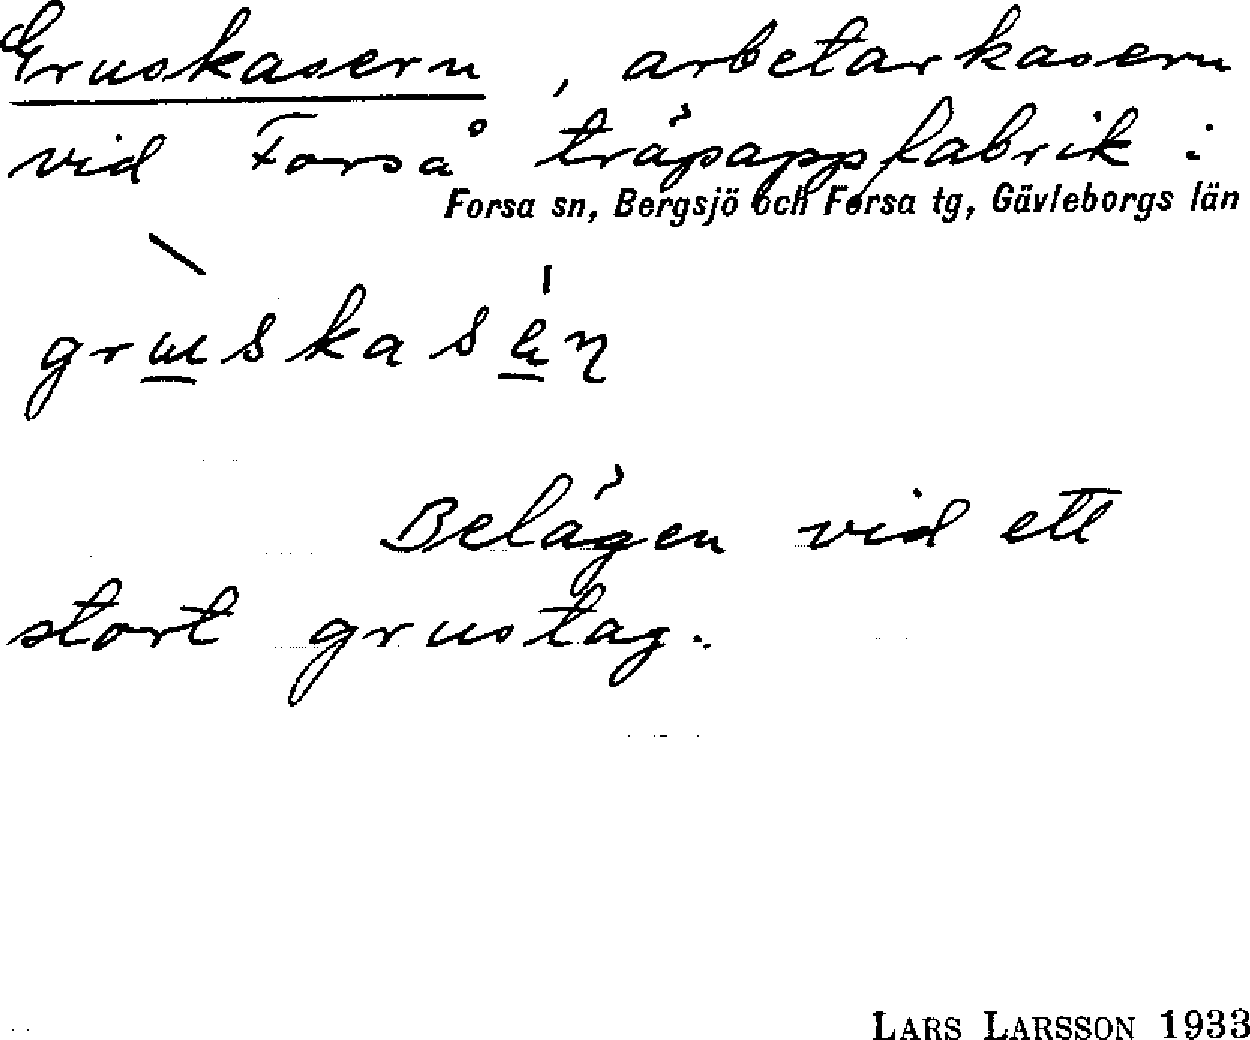 Gruskasern, arbetarkasern
vid Forså träpappfabrik:
Forsa sn, Bergsjö och Forsa tg, Gävleborgs län
Belägen vid ett
stort grustag.
LARS LARSSON 1933